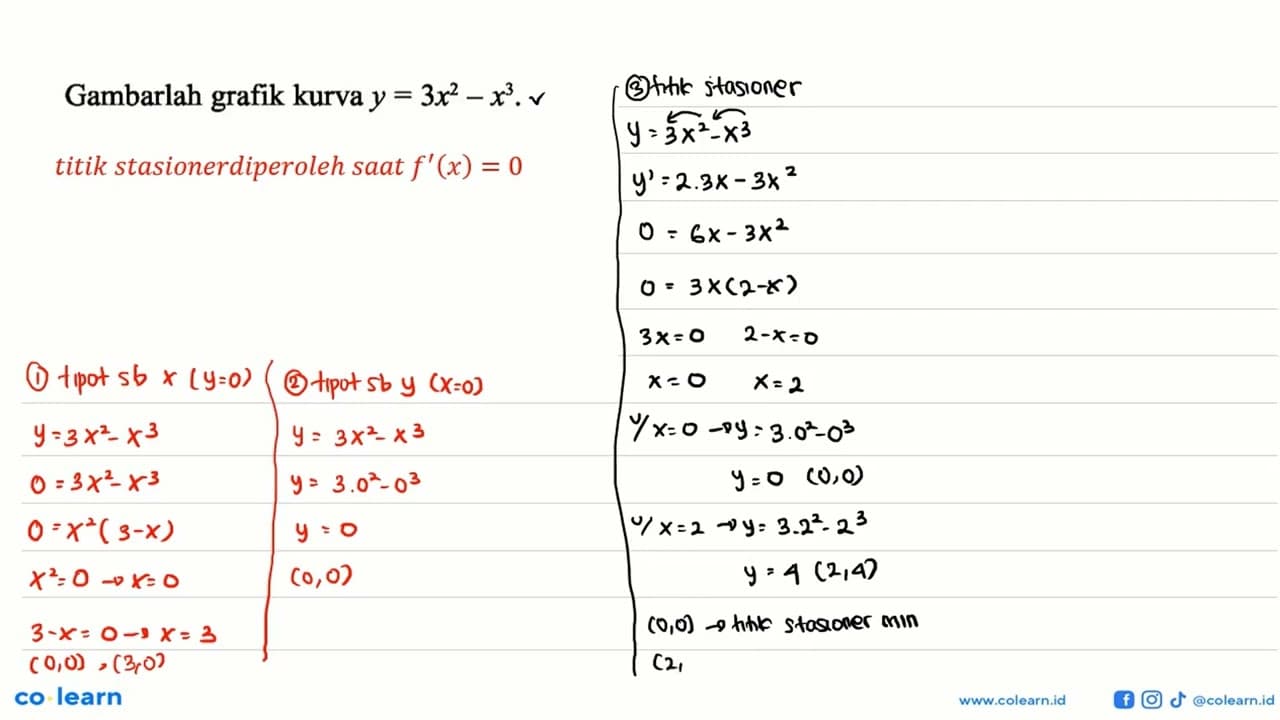 Gambarlah grafik kurva y = 3x² – x³. ✓
titik stasionerdiperoleh saat f'(x) = 0
① tipot sb x (y=0)
y=3x²-x³
0=3x²-x³
0=x²(3-x)
x²=0 → x=0
3-x=0 → x=3
(0,0), (3,0)
② tipot sb y (x=0)
y= 3x²-x³
y= 3.0²-0³
y = 0
(0,0)
③ titik stasioner
y=3x²-x³
y'=2.3x-3x²
0 = 6x-3x²
0 = 3x(2-x)
3x=0 2-x=0
x=0 x=2
u/ x=0 → y= 3.0²-0³
y=0 (0,0)
u/ x=2 → y= 3.2²-2³
y=4 (2,4)
(0,0) → titik stasioner min
(2,
co learn
www.colearn.id
@colearn.id